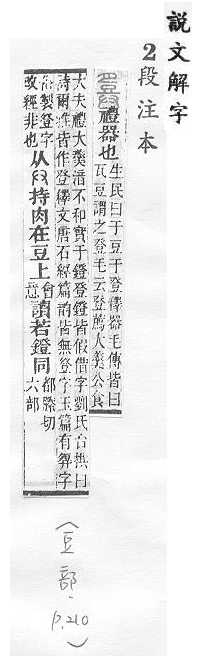 說文解字
2段注本
禮器也
生民曰于豆于登釋器毛傳皆曰
瓦豆謂之登毛云登薦大羹公食
大夫禮大羹湆不和實于鐙登鐙皆假借字劉氏台拱曰
詩爾雅皆作登釋文唐石經篇韵皆無豋字玉篇有字
俗製豋字
改經非也
从𠬞持肉在豆上
會意
讀若鐙同
都滕切
六部
(豆部, p.210)